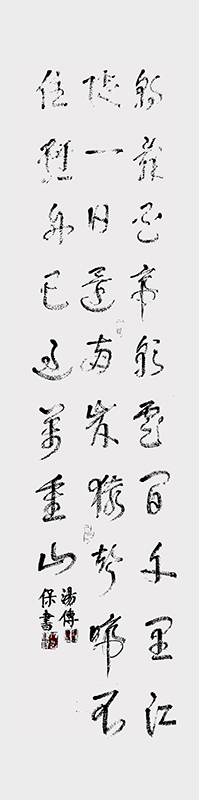 朝辭白帝彩雲間千里江
陵一日還兩岸猿聲啼不
住輕舟已過萬重山
湯傳
保書